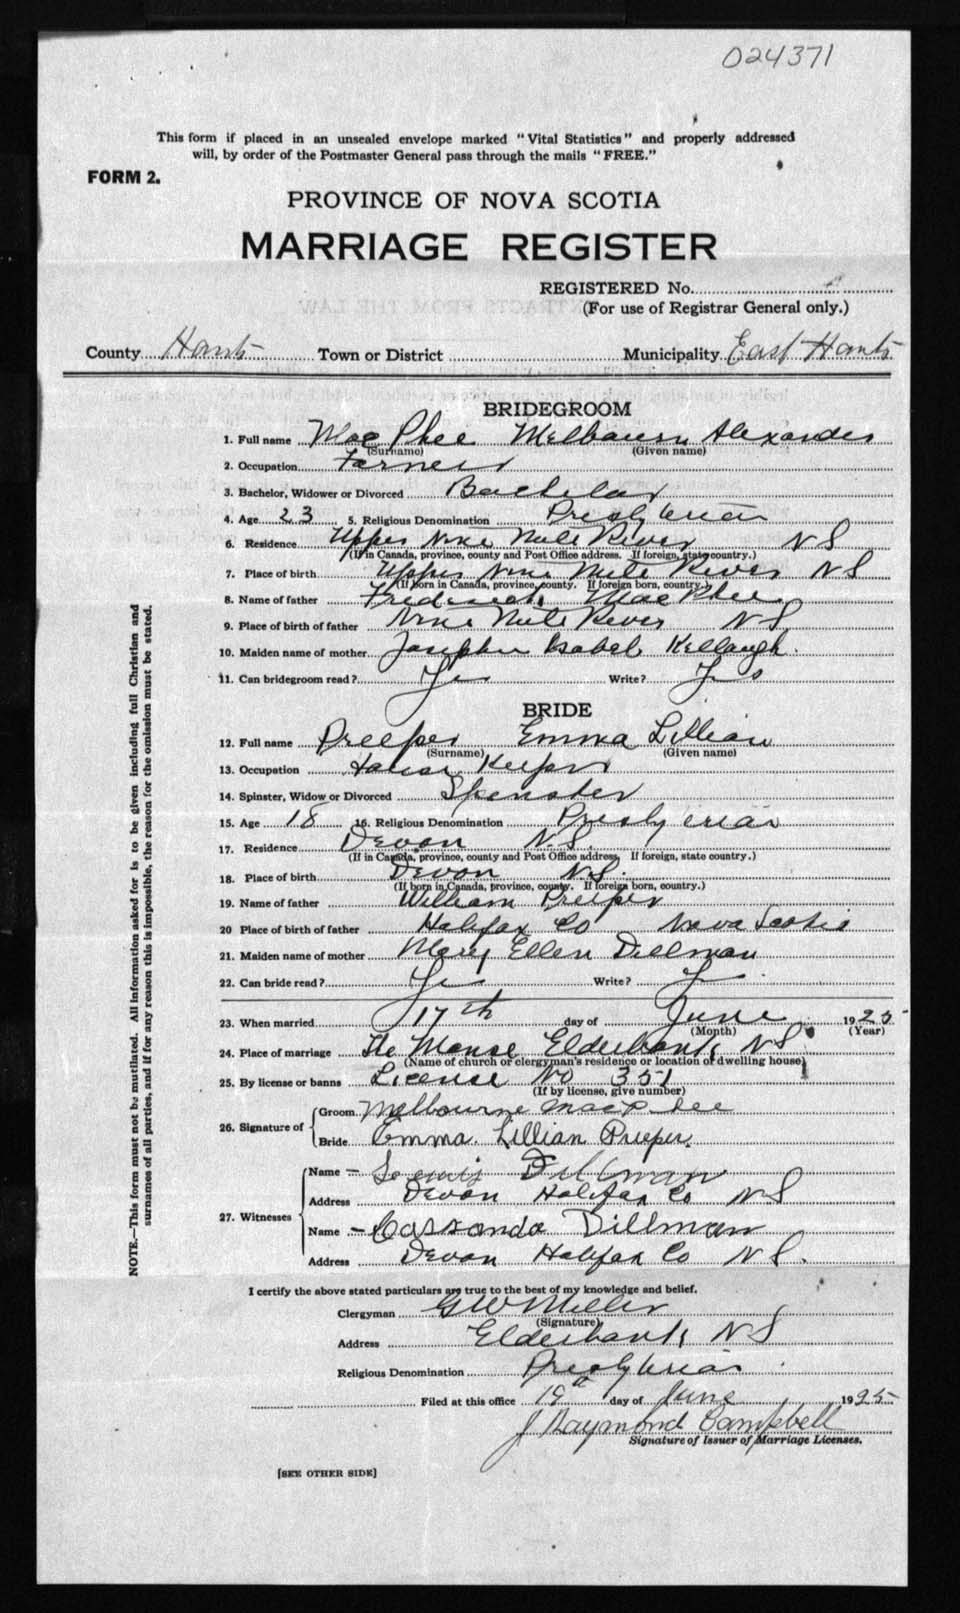 024371
This form if placed in an unsealed envelope marked "Vital Statistics" and properly addressed
will, by order of the Postmaster General pass through the mails "FREE."
FORM 2.
PROVINCE OF NOVA SCOTIA
MARRIAGE REGISTER
REGISTERED No.
(For use of Registrar General only.)
County Hants Town or District Municipality East Hants
BRIDEGROOM
1. Full name MacPhee Melbourn Alexander
(Surname) (Given name)
2. Occupation Farmer
3. Bachelor, Widower or Divorced Bachelor
4. Age 23 5. Religious Denomination Presbyterian
6. Residence Upper Nine Mile River NS
(If in Canada, province, county and Post Office address. If foreign, state country.)
7. Place of birth Upper Nine Mile River NS
(If born in Canada, province, county. If foreign born, country.)
8. Name of father Frederick MacPhee
9. Place of birth of father Nine Mile River NS
10. Maiden name of mother Isabel Kellough
11. Can bridegroom read? Yes Write? Yes
BRIDE
12. Full name Preeper Emma Lillian
(Surname) (Given name)
13. Occupation House Keeper
14. Spinster, Widow or Divorced Spinster
15. Age 18 16. Religious Denomination Presbyterian
17. Residence Devon N.S.
(If in Canada, province, county and Post Office address. If foreign, state country.)
18. Place of birth Devon N.S.
(If born in Canada, province, county. If foreign born, country.)
19. Name of father William Preeper
20 Place of birth of father Halifax Co Nova Scotia
21. Maiden name of mother Mary Ellen Dillman
22. Can bride read? Yes Write? Yes
23. When married 17th day of June 1925
(Month) (Year)
24. Place of marriage The Manse Elderbank NS
(Name of church or clergyman's residence or location of dwelling house)
25. By license or banns License No 351
(If by license, give number)
26. Signature of
Groom Melbourne MacPhee
Bride Emma Lillian Preeper.
27. Witnesses
Name Dillman
Address Devon Halifax Co NS
Name Cassanda Dillman
Address Devon Halifax Co N S.
I certify the above stated particulars are true to the best of my knowledge and belief.
Clergyman G W Miller
(Signature)
Address Elderbank NS
Religious Denomination Presbyterian
Filed at this office 19th day of June 1925
J Raymond Campbell
Signature of Issuer of Marriage Licenses.
[SEE OTHER SIDE]
NOTE.—This form must not be mutilated. All information asked for is to be given including full Christian and
surnames of all parties, and if for any reason this is impossible, the reason for the omission must be stated.